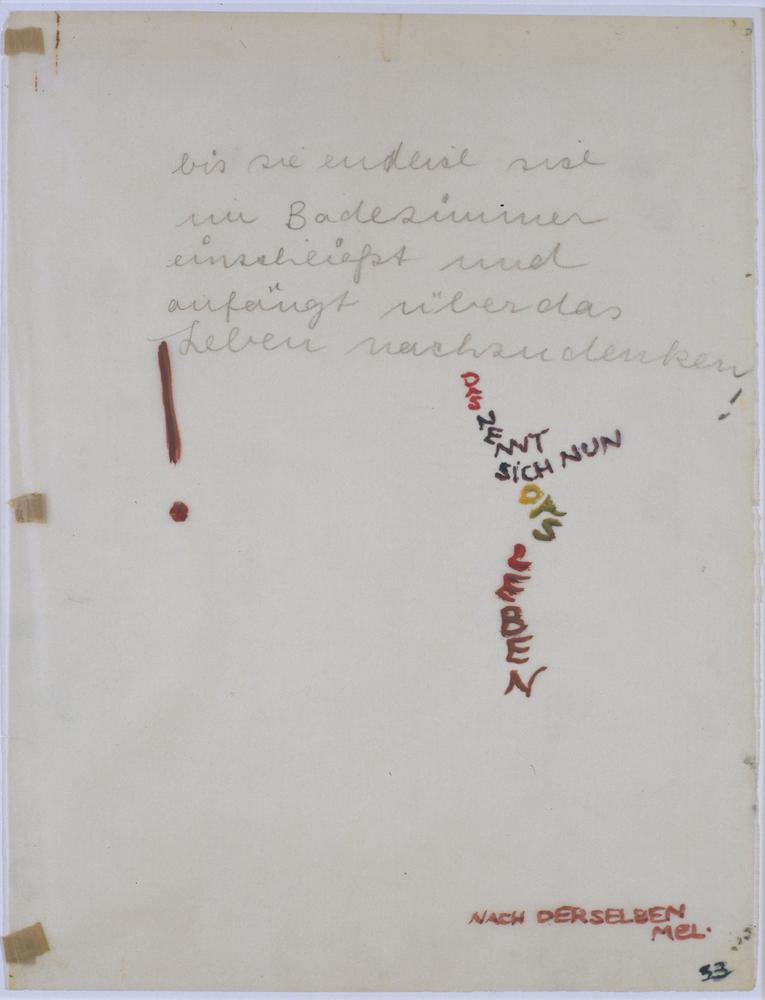 bis sie endlich sich
im Badezimmer
einschließt und
anfängt über das
Leben nachzudenken !
!
DAS
NENNT
SICH NUN
DAS
LEBEN
NACH DERSELBEN
MEL.
53